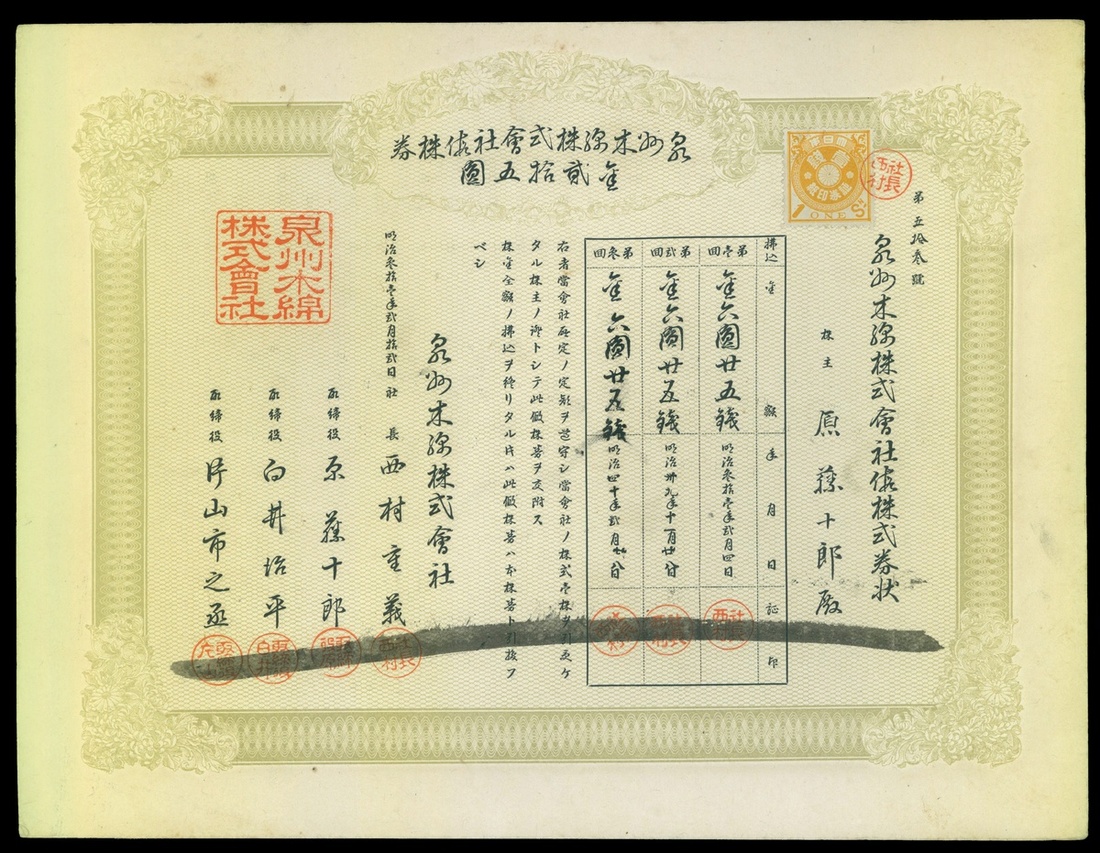 泉州木綿株式會社假株券
金貳拾五圓
1 ONE Sn
社長西村
第五拾參號
泉州木綿株式會社假株式券状
株主 原藤十郎殿
拂込金額 年月日 証印
第壱回 金六圓廿五銭 明治參拾壱年貳月四日 社長西村
第貳回 金六圓廿五銭 明治卅九年十一月
第參回 金六圓廿五銭 明治四十年貳月
右者當會社所定ノ定款ヲ遵守シ當會社ノ株式壱株ヲ引受ケ
タル株主ノ証トシテ此假株券ヲ交附ス
株金全額ノ拂込ヲ終リタル片ハ此假株券ハ本株券ト引換フ
ベシ
泉州木綿株式會社
明治參拾壱年貳月拾貳日 社長 西村重義
取締役 原藤十郎
取締役 白井治平
取締役 片山市之丞
泉州木綿
株式會社